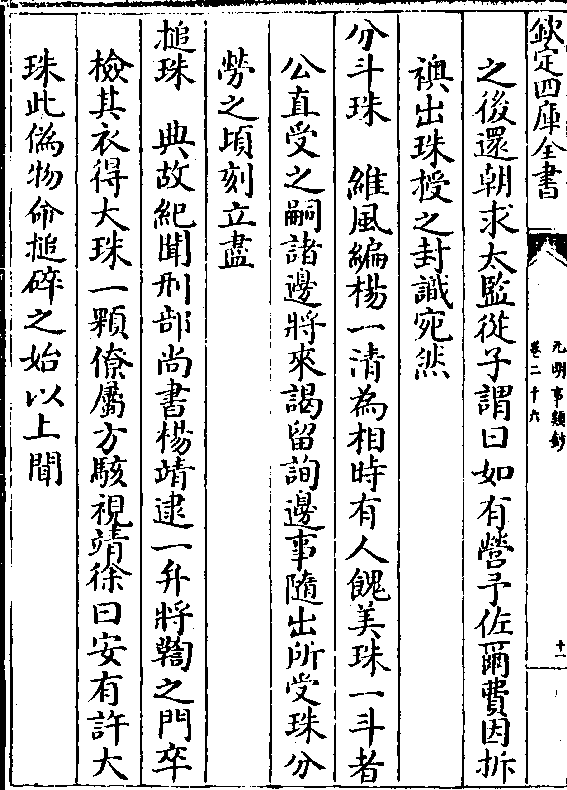 欽定四庫全書
元明事類鈔
卷二十六
十一
之後還朝求太監從子謂曰如有營予佐爾費因拆
襖出珠授之封識宛然
分斗珠　維風編楊一清為相時有人餽美珠一斗者
公直受之嗣諸邊將來謁留詢邊事隨出所受珠分
勞之頃刻立盡
搥珠　典故紀聞刑部尚書楊靖逮一弁將鞫之門卒
檢其衣得大珠一顆僚屬方駭視靖徐曰安有許大
珠此偽物命搥碎之始以上聞